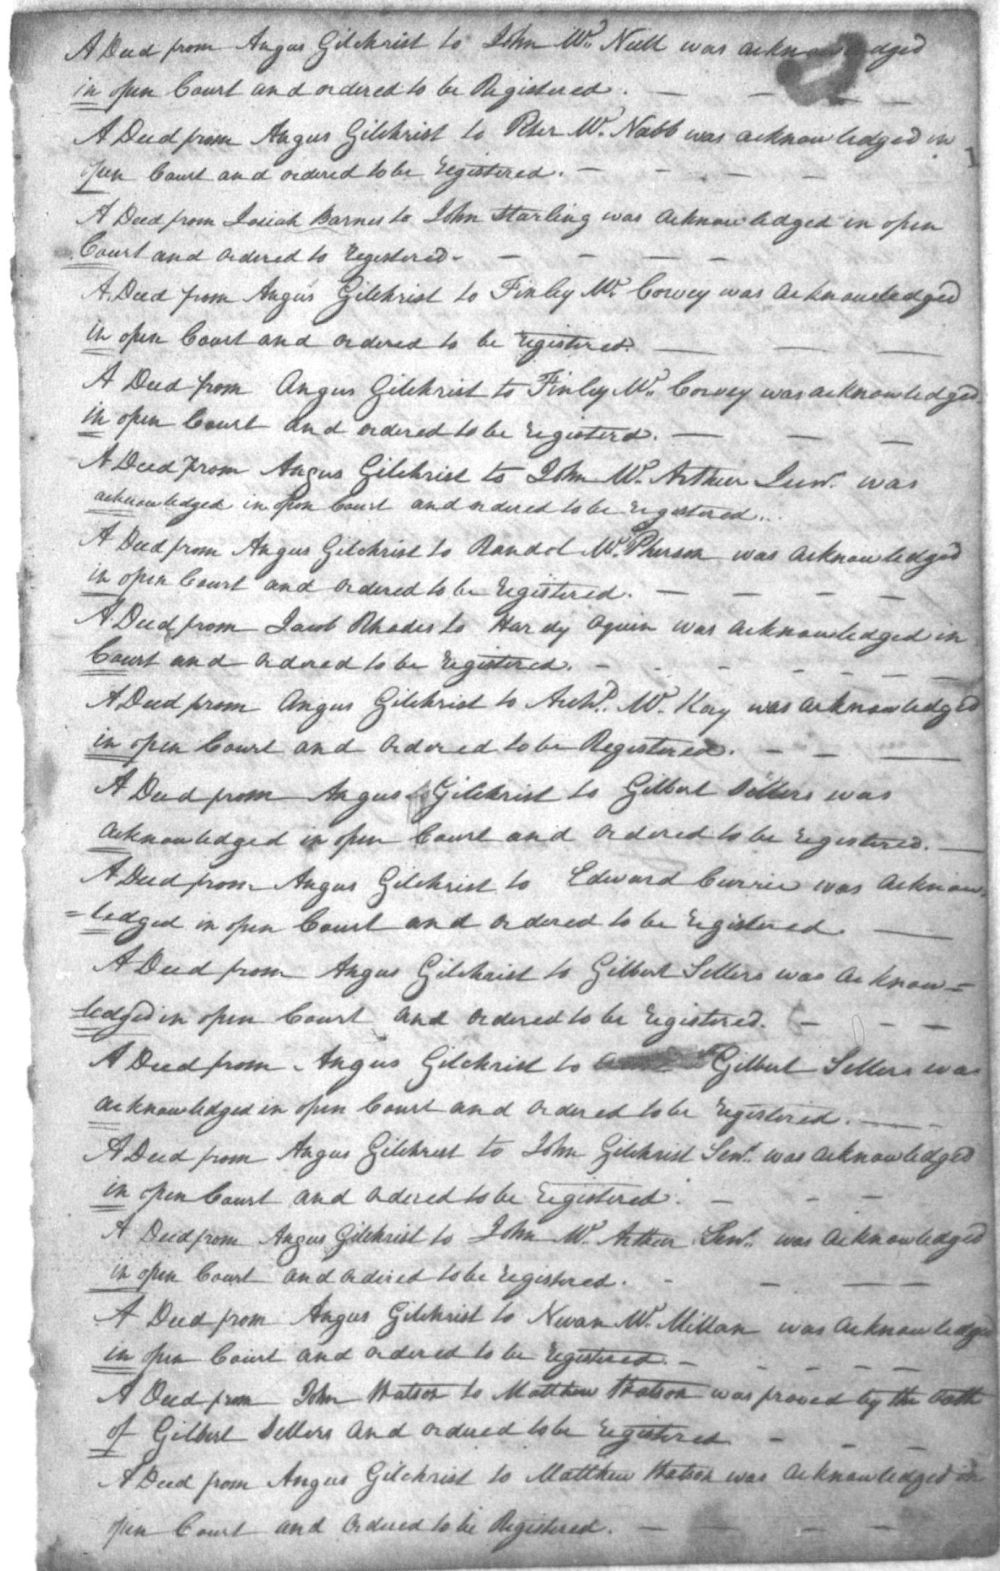 A Deed from Angus Gilchrist to John Mc. Neill was acknowledged
in open Court and ordered to be Registered.
A Deed from Angus Gilchrist to Peter Mc. Nabb was acknowledged in
open Court and ordered to be registered.
A Deed from Josiah Barnes to John Starling was acknowledged in open
Court and ordered to registered.
A Deed from Angus Gilchrist to Finley Mc. Corvey was acknowledged
in open Court and ordered to be registered.
A Deed from Angus Gilchrist to Finley Mc. Corvey was acknowledged
in open Court and ordered to be registerd.
A Deed from Angus Gilchrist to John Mc. Arthur Junr. was
acknowledged in open Court and ordered to be registered.
A Deed from Angus Gilchrist to Randol Mc. Pherson was acknowledged
in open Court and ordered to be registered.
A Deed from Jacob Rhodes to Hardy Oquin was acknowledged in
Court and ordered to be registered.
A Deed from Angus Gilchrist to Archd. Mc. Kay was acknowledged
in open Court and ordered to be Registered.
A Deed from Angus Gilchrist to Gilbert Sellers was
acknowledged in open Court and ordered to be registered.
A Deed from Angus Gilchrist to Edward Currie was acknow=
=ledged in open Court and ordered to be registered
A Deed from Angus Gilchrist to Gilbert Sellers was acknow=
=ledged in open Court and ordered to be registered.
A Deed from Angus Gilchrist to Gilbert Sellers was
acknowledged in open Court and ordered to be registered.
A Deed from Angus Gilchrist to John Gilchrist Senr. was acknowledged
in open Court and ordered to be registered.
A Deed from Angus Gilchrist to John Mc. Arthur Senr. was acknowledged
in open Court and ordered to be registered.
A Deed from Angus Gilchrist to Nevan Mc. Millan was acknowledged
in open Court and ordered to be registered.
A Deed from John Watson to Matthew Watson was proved by the Oath
of Gilbert Sellers and ordered to be registered
A Deed from Angus Gilchrist to Matthew Watson was acknowledged in
open Court and ordered to be Registered.